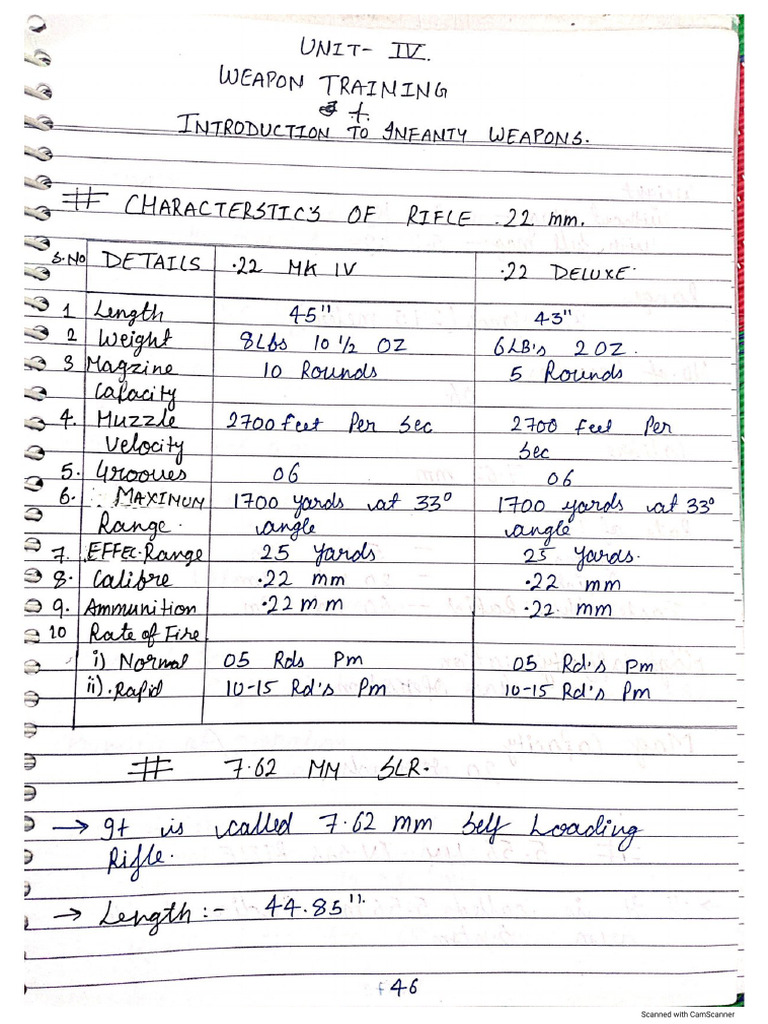 UNIT- IV.
WEAPON TRAINING
&
INTRODUCTION TO INFANTY WEAPONS.
# CHARACTERSTIC'S OF RIFLE .22 mm.
S.No DETAILS .22 MK IV .22 DELUXE
1 Length 45" 43"
2 Weight 8Lbs 10 1/2 OZ 6LB's 2 OZ.
3 Magzine 10 Rounds 5 Rounds
Capacity
4. Muzzle 2700 feet Per Sec 2700 feet Per
Velocity Sec
5. Grooves 06 06
6. MAXIMUM 1700 yards at 33° 1700 yards at 33°
Range. angle angle
7. EFFEC. Range 25 Yards 25 Yards.
8. Calibre .22 mm .22 mm
9. Ammunition .22 mm .22 mm
10 Rate of Fire
i) Normal 05 Rds Pm 05 Rd's Pm
ii). Rapid 10-15 Rd's Pm 10-15 Rd's Pm
# 7.62 MM SLR.
→ It is called 7.62 mm Self Loading
Rifle.
→ Length :- 44.85".
46
Scanned with CamScanner